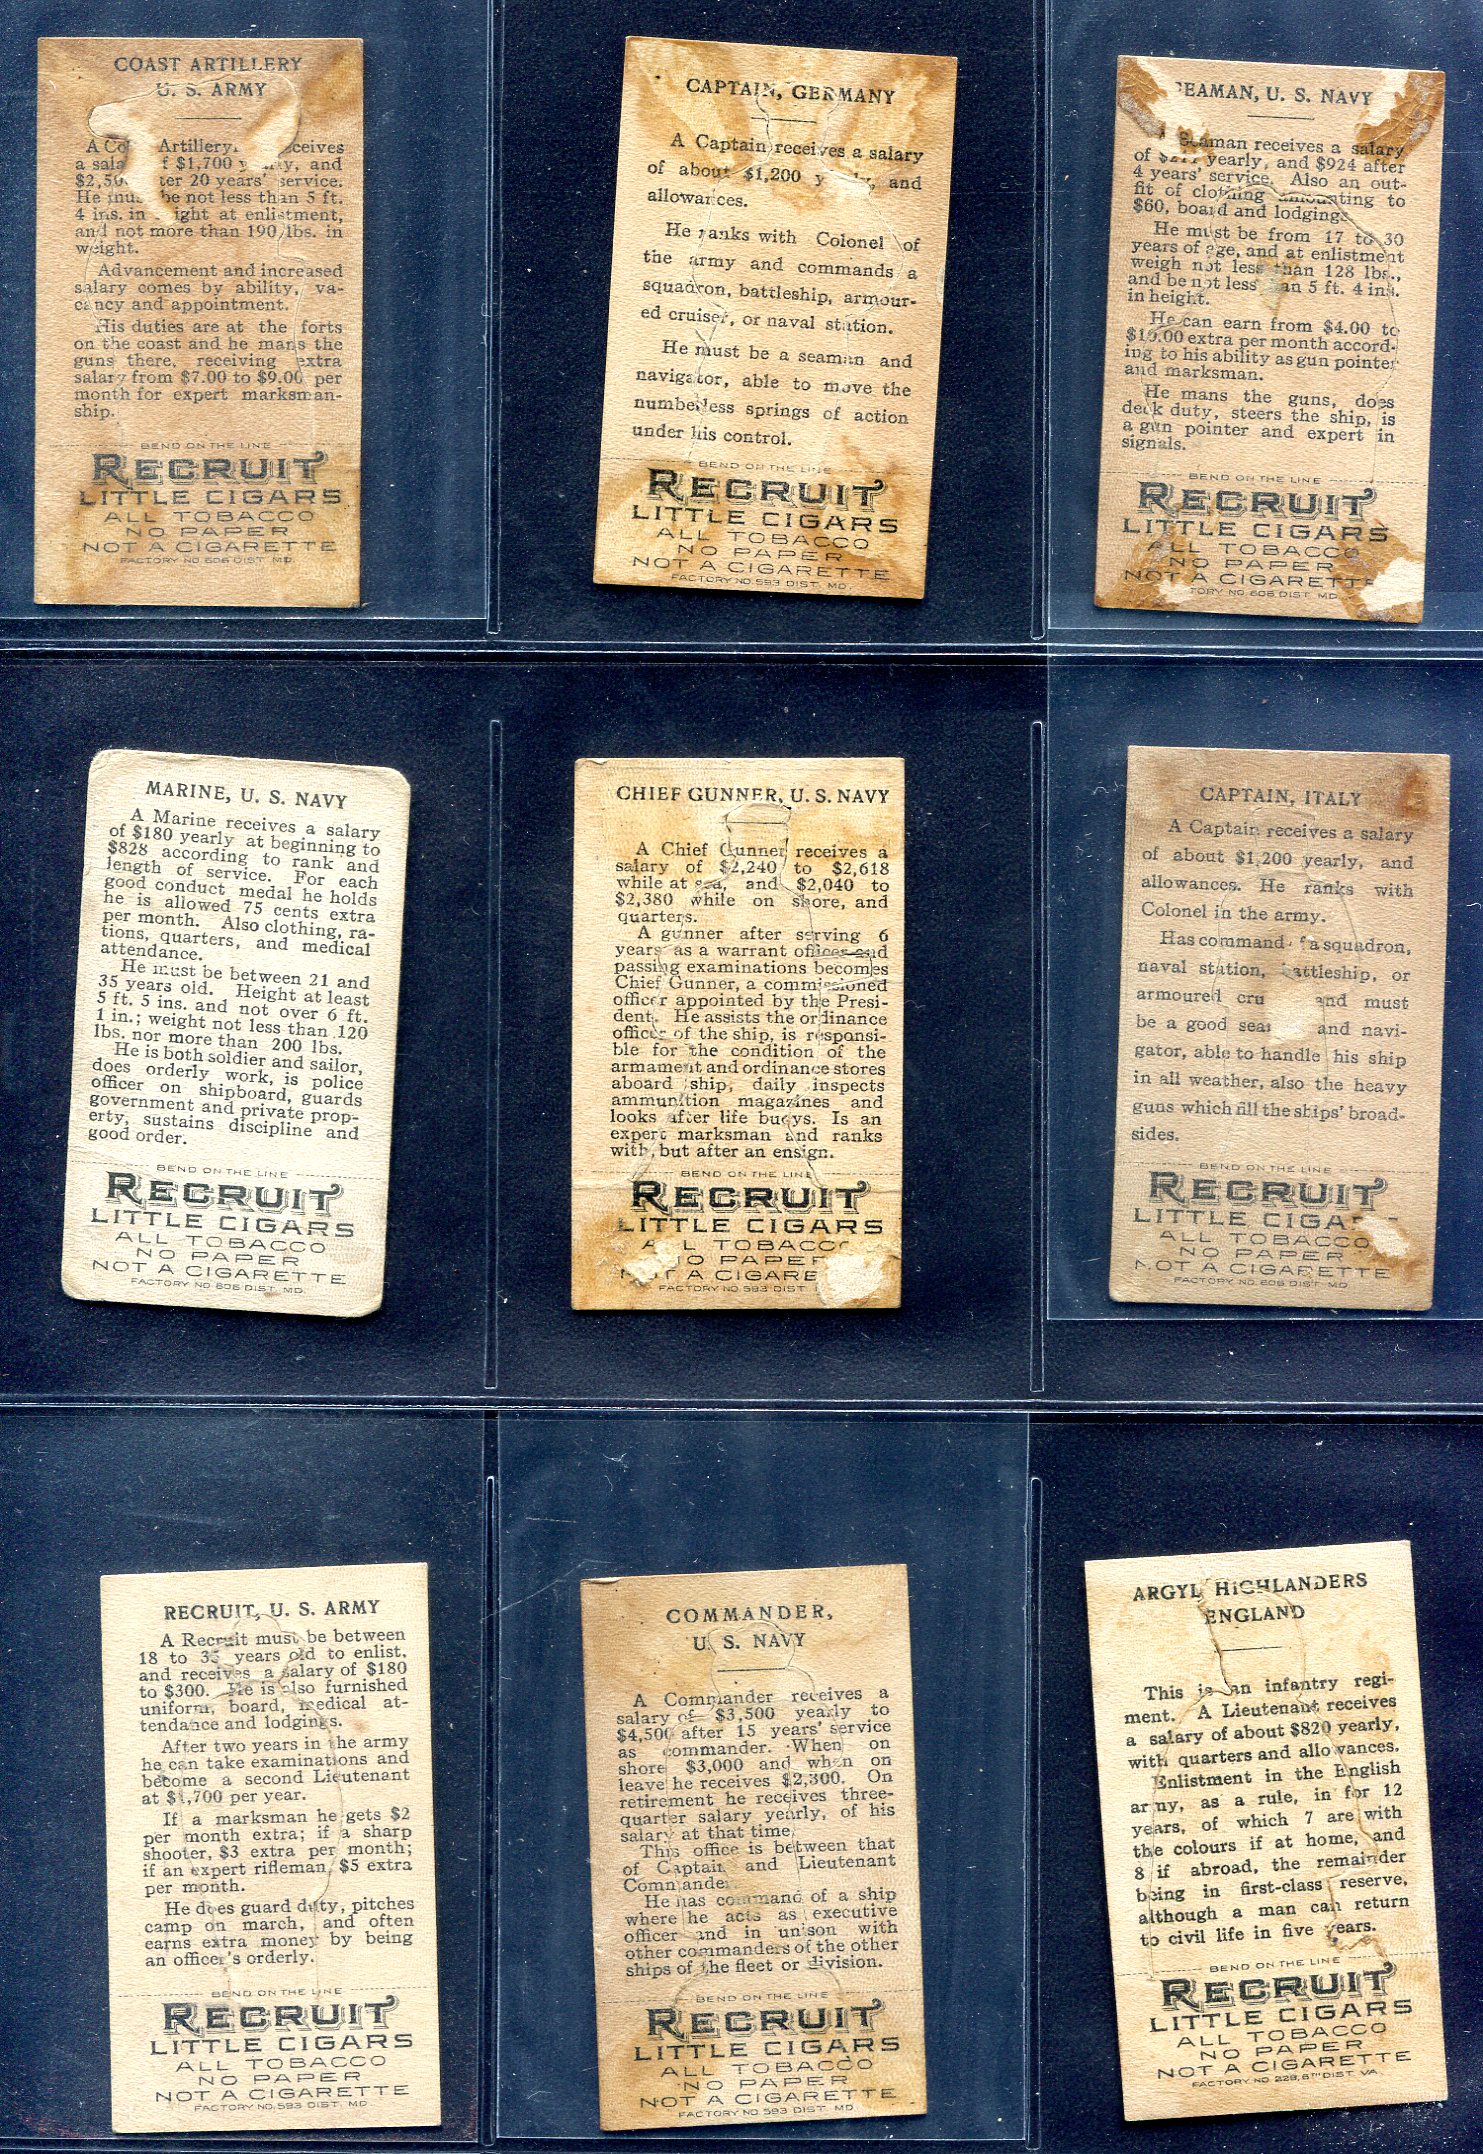 COAST ARTILLERY
U. S. ARMY
A Artillery ceives
a sala f $1,700 and
ter 20 years' service.
He must be not less than 5 ft.
4 ins. in ight at enlistment,
and not more than 190 lbs. in
weight.
Advancement and increased
salary comes by ability, va-
cancy and appointment.
His duties are at the forts
on the coast and he mans the
guns there, receiving extra
salary from $7.00 to $9.00 per
month for expert marksman-
ship.
BEND ON THE LINE
RECRUIT
LITTLE CIGARS
ALL TOBACCO
NO PAPER
NOT A CIGARETTE
FACTORY NO. 606 DIST. MD.
CAPTAIN, GERMANY
A Captain receives a salary
of about $1,200 and
allowances.
He ranks with Colonel of
the army and commands a
squadron, battleship, armour-
ed cruiser, or naval station.
He must be a seaman and
navigator, able to move the
numberless springs of action
under his control.
BEND ON THE LINE
RECRUIT
LITTLE CIGARS
ALL TOBACCO
NO PAPER
NOT A CIGARETTE
FACTORY NO. 593 DIST. MD.
EAMAN, U. S. NAVY
Seaman receives a salary
of yearly, and $924 after
4 years' service. Also an out-
fit of clothing amounting to
$60, board and lodgings.
He must be from 17 to 30
years of age, and at enlistment
weigh not less than 128 lbs.,
and be not less an 5 ft. 4 ins.
in height.
He can earn from $4.00 to
$10.00 extra per month accord-
ing to his ability as gun pointer
and marksman.
He mans the guns, does
deck duty, steers the ship, is
a gun pointer and expert in
signals.
BEND ON THE LINE
RECRUIT
LITTLE CIGARS
ALL TOBACCO
NO PAPER
NOT A CIGARETTE
TORY NO. 606 DIST. MD.
MARINE, U. S. NAVY
A Marine receives a salary
of $180 yearly at beginning to
$828 according to rank and
length of service. For each
good conduct medal he holds
he is allowed 75 cents extra
per month. Also clothing, ra-
tions, quarters, and medical
attendance.
He must be between 21 and
35 years old. Height at least
5 ft. 5 ins. and not over 6 ft.
1 in.; weight not less than 120
lbs. nor more than 200 lbs.
He is both soldier and sailor,
does orderly work, is police
officer on shipboard, guards
government and private prop-
erty, sustains discipline and
good order.
BEND ON THE LINE
RECRUIT
LITTLE CIGARS
ALL TOBACCO
NO PAPER
NOT A CIGARETTE
FACTORY NO. 606 DIST. MD.
CHIEF GUNNER, U. S. NAVY
A Chief Gunner receives a
salary of $2,240 to $2,618
while at sea, and $2,040 to
$2,380 while on shore, and
quarters.
A gunner after serving 6
years as a warrant officer and
passing examinations becomes
Chief Gunner, a commissioned
officer appointed by the Presi-
dent. He assists the ordinance
officer of the ship, is responsi-
ble for the condition of the
armament and ordinance stores
aboard ship, daily inspects
ammunition magazines and
looks after life buoys. Is an
expert marksman and ranks
with, but after an ensign.
BEND ON THE LINE
RECRUIT
LITTLE CIGARS
A L TOBACC
NO PAPER
NOT A CIGARE
FACTORY NO. 593 DIST
CAPTAIN, ITALY
A Captain receives a salary
of about $1,200 yearly, and
allowances. He ranks with
Colonel in the army.
Has command of a squadron,
naval station, battleship, or
armoured cru and must
be a good sea and navi-
gator, able to handle his ship
in all weather, also the heavy
guns which fill the ships' broad-
sides.
BEND ON THE LINE
RECRUIT
LITTLE CIGA
ALL TOBACCO
NO PAPER
NOT A CIGARETTE
FACTORY NO. 606 DIST. MD
RECRUIT, U. S. ARMY
A Recruit must be between
18 to 35 years old to enlist,
and receives a salary of $180
to $300. He is also furnished
uniform, board, medical at-
tendance and lodgings.
After two years in the army
he can take examinations and
become a second Lieutenant
at $1,700 per year.
If a marksman he gets $2
per month extra; if a sharp
shooter, $3 extra per month;
if an expert rifleman, $5 extra
per month.
He does guard duty, pitches
camp on march, and often
earns extra money by being
an officer's orderly.
BEND ON THE LINE
RECRUIT
LITTLE CIGARS
ALL TOBACCO
NO PAPER
NOT A CIGARETTE
FACTORY NO. 593 DIST. MD.
COMMANDER,
U. S. NAVY
A Commander receives a
salary of $3,500 yearly to
$4,500 after 15 years' service
as commander. When on
shore $3,000 and when on
leave he receives $2,300. On
retirement he receives three-
quarter salary yearly, of his
salary at that time.
This office is between that
of Captain and Lieutenant
Commander.
He has command of a ship
where he acts as executive
officer and in unison with
other commanders of the other
ships of the fleet or division.
BEND ON THE LINE
RECRUIT
LITTLE CIGARS
ALL TOBACCO
NO PAPER
NOT A CIGARETTE
FACTORY NO. 593 DIST. MD.
ARGYL HIGHLANDERS
ENGLAND
This is an infantry regi-
ment. A Lieutenant receives
a salary of about $820 yearly,
with quarters and allowances.
Enlistment in the English
army, as a rule, in for 12
years, of which 7 are with
the colours if at home, and
8 if abroad, the remainder
being in first-class reserve,
although a man can return
to civil life in five years.
BEND ON THE LINE
RECRUIT
LITTLE CIGARS
ALL TOBACCO
NO PAPER
NOT A CIGARETTE
FACTORY NO. 229, 6TH DIST. VA.